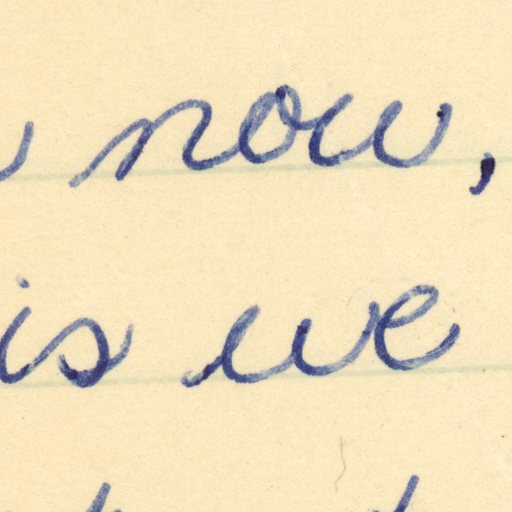 now,
is we